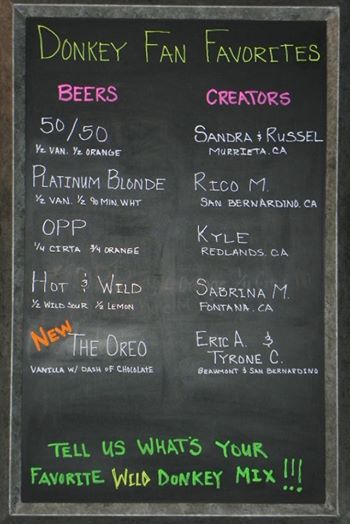 DONKEY FAN FAVORITES
BEERS
CREATORS
50/50
½ VAN. ½ ORANGE
SANDRA & RUSSEL
MURRIETA, CA
PLATINUM BLONDE
½ VAN. ½ 90 MIN. WHT
RICO M.
SAN BERNARDINO, CA
OPP
¼ CIRTA ¾ ORANGE
KYLE
REDLANDS, CA
HOT & WILD
½ WILD SOUR ½ LEMON
SABRINA M.
FONTANA, CA
NEW
THE OREO
VANILLA W/ DASH OF CHOCOLATE
ERIC A. &
TYRONE C.
BEAUMONT & SAN BERNARDINO
TELL US WHAT'S YOUR
FAVORITE WILD DONKEY MIX!!!